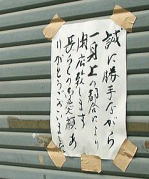 誠に勝手ながら
一身上の都合により
閉店致します
長らくのご愛顧あ
りがとうございました